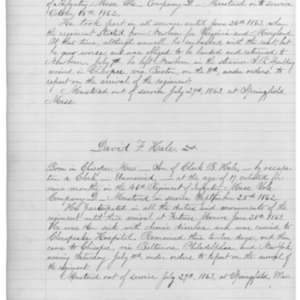 of Infantry Mass. Vols. Company D. - Mustered into service
October 15th 1862.
He took part in all services until June 26th 1863 when
the regiment started from Newbern for Virginia and Maryland.
At that time, although unwell, he
any service and was obliged to be landed and returned to
Newbern July 7th he left Newbern in the
arrived in Chicopee via Boston, on the 11th, under orders to
report on the arrival of the regiment.
Mustered out of service July 29th 1863 at Springfield
Mass.
David F. Hale
Born in Chicopee, Mass - Son of Clark B. Hale, - by occupa-
tion a Clerk - Unmarried - at the age of 19 enlisted for
nine months in the 46th Regiment of Infantry Mass Vols.
Company D. - Mustered into service September 25th 1862.
Has participated in all the duties and movements of the
regiment until their arrival at Fortress Monroe June 30th 1863
He was then sick with chronic diarrhea, and was removed to
Chesapeake Hospital. Remained there twelve days, and then
came to Chicopee, via Baltimore, Philadelphia and New York,
arriving Saturday July, under orders to report on the arrival
of the regiment.
Mustered out of service July 29th 1863, at Springfield, Mass.